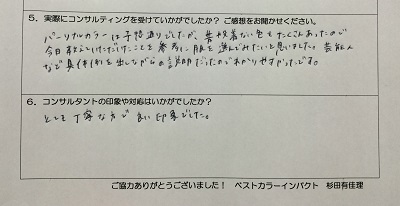 5. 実際にコンサルティングを受けていかがでしたか？ ご感想をお聞かせください。
パーソナルカラーは予想通りでしたが、普段着ない色もたくさんあったので
今日教えていただけたことを参考に服を選んでみたいと思いました。芸能人
など具体例を出しながらの説明だったのでわかりやすかったです。
6. コンサルタントの印象や対応はいかがでしたか？
とても丁寧な方で良い印象でした。
ご協力ありがとうございました！ ベストカラーインパクト 杉田有佳理